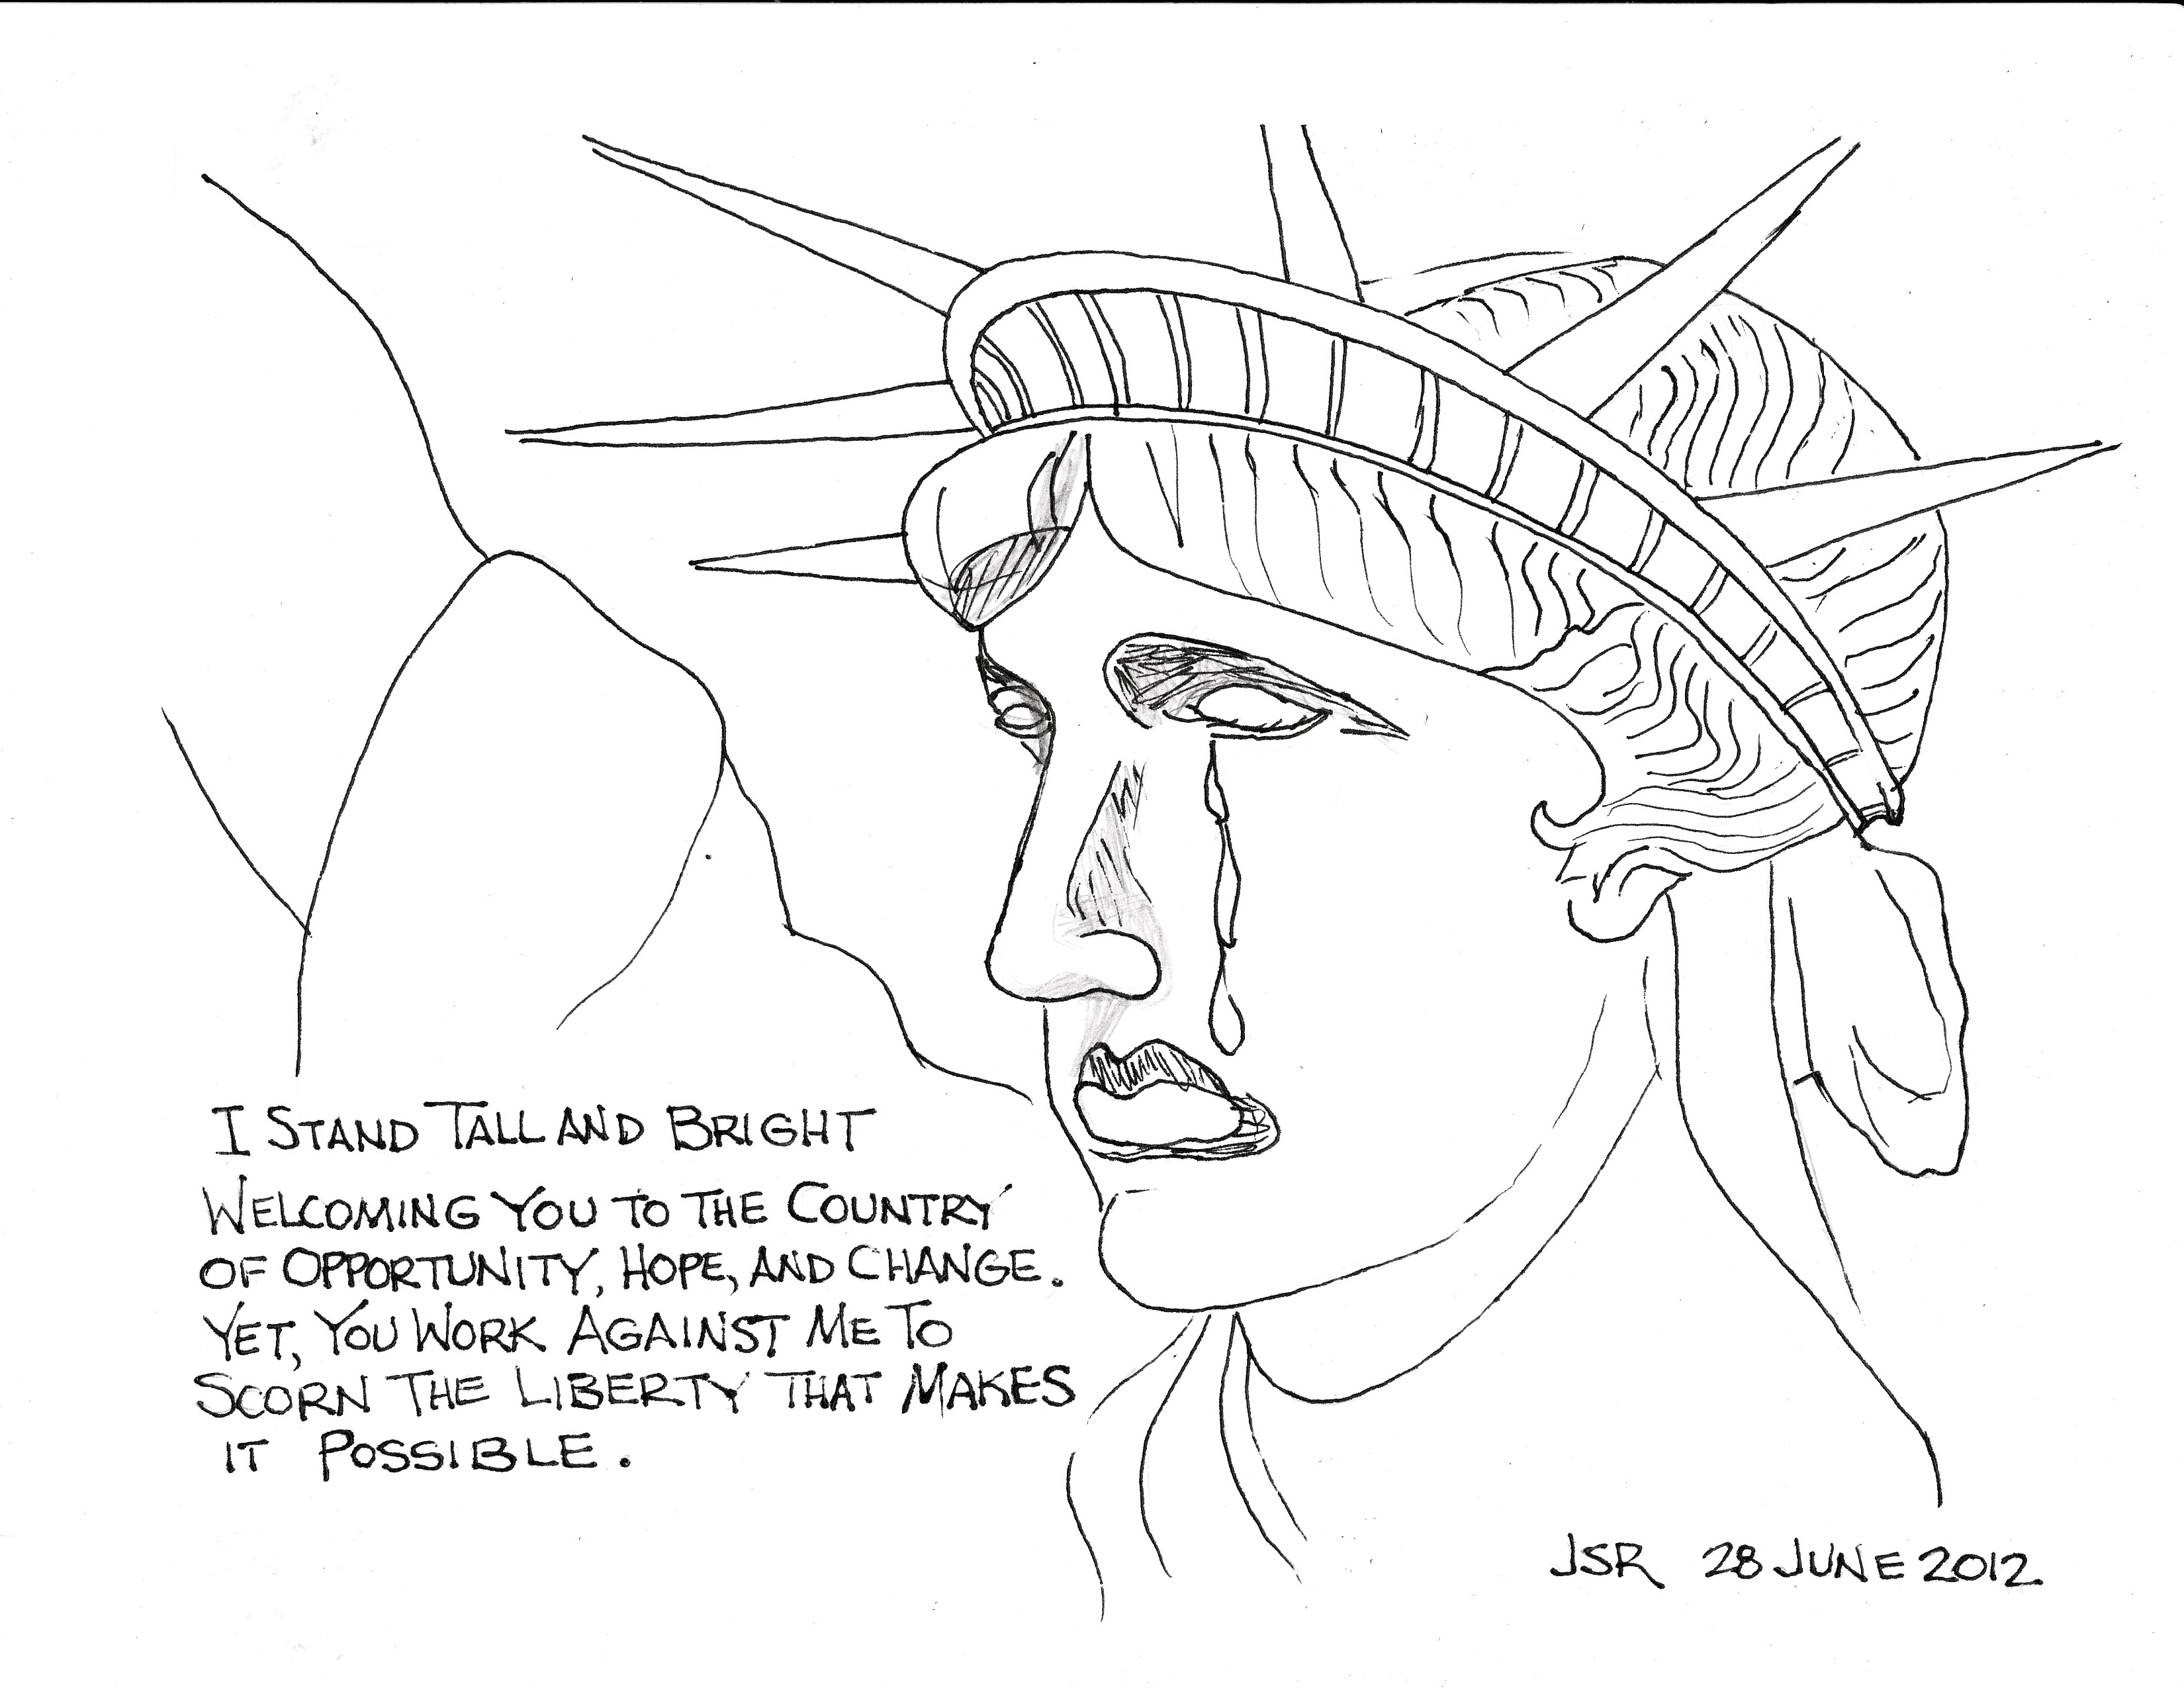 I STAND TALL AND BRIGHT
WELCOMING YOU TO THE COUNTRY
OF OPPORTUNITY, HOPE, AND CHANGE.
YET, YOU WORK AGAINST ME TO
SCORN THE LIBERTY THAT MAKES
IT POSSIBLE.
JSR 28 JUNE 2012